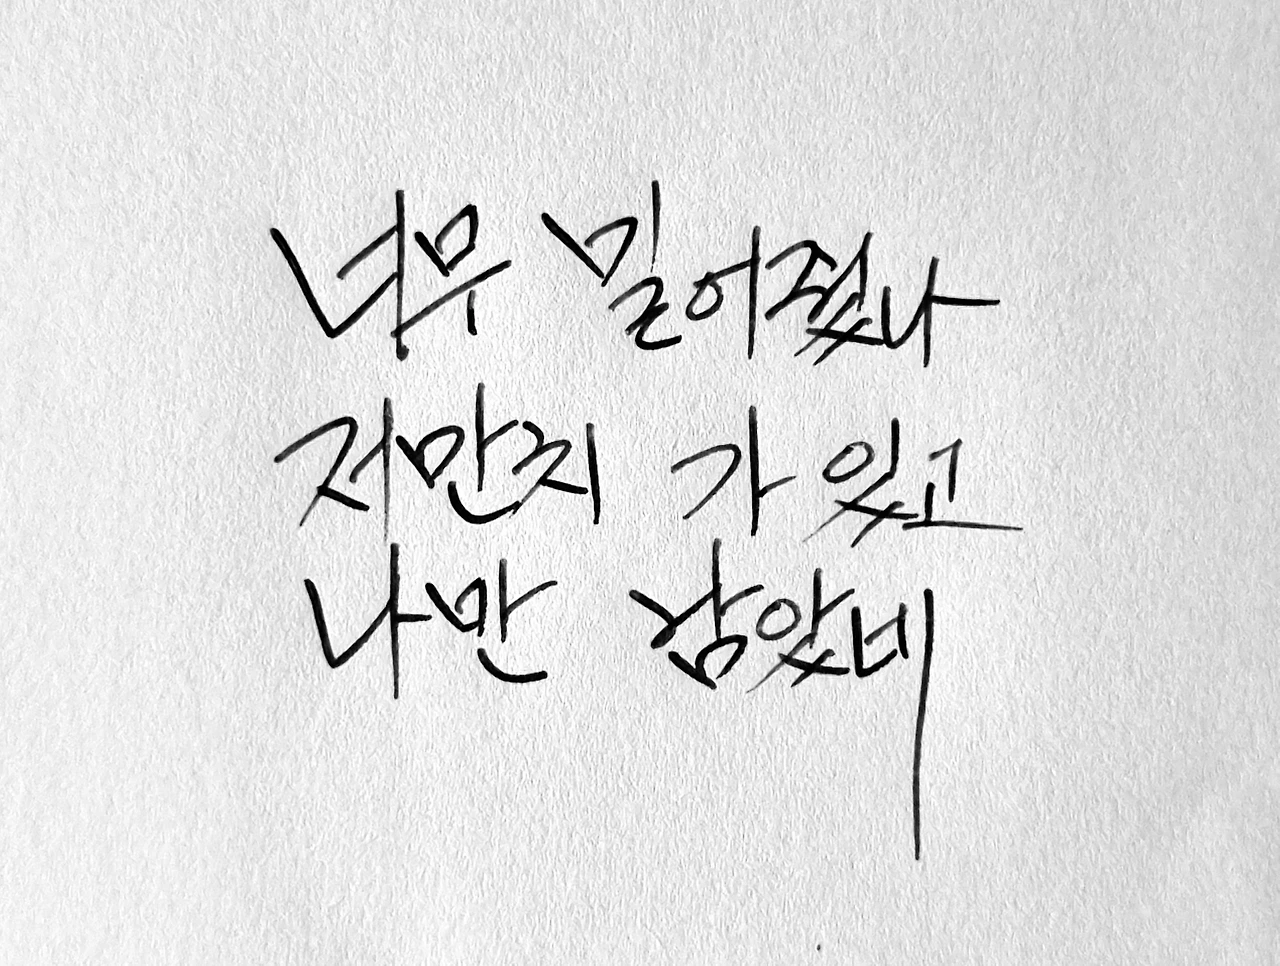 너무 밀어줬나
저만치 가 있고
나만 남았네